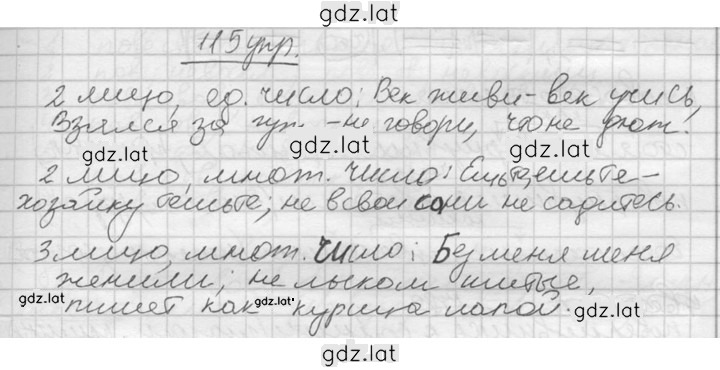 gdz.lat
115 упр.
2 лицо, ед. число: Век живи - век учись,
Взялся за гуж - не говори, что не дюж.
gdz.lat gdz.lat
2 лицо, множ. число: Ешьте, ешьте -
хозяйку тешьте; не в свои сани не садитесь.
3 лицо, множ. число: Без меня меня
женили; не лыком шитые,
gdz.lat gdz.lat
пишет как курица лапой.
gdz.lat